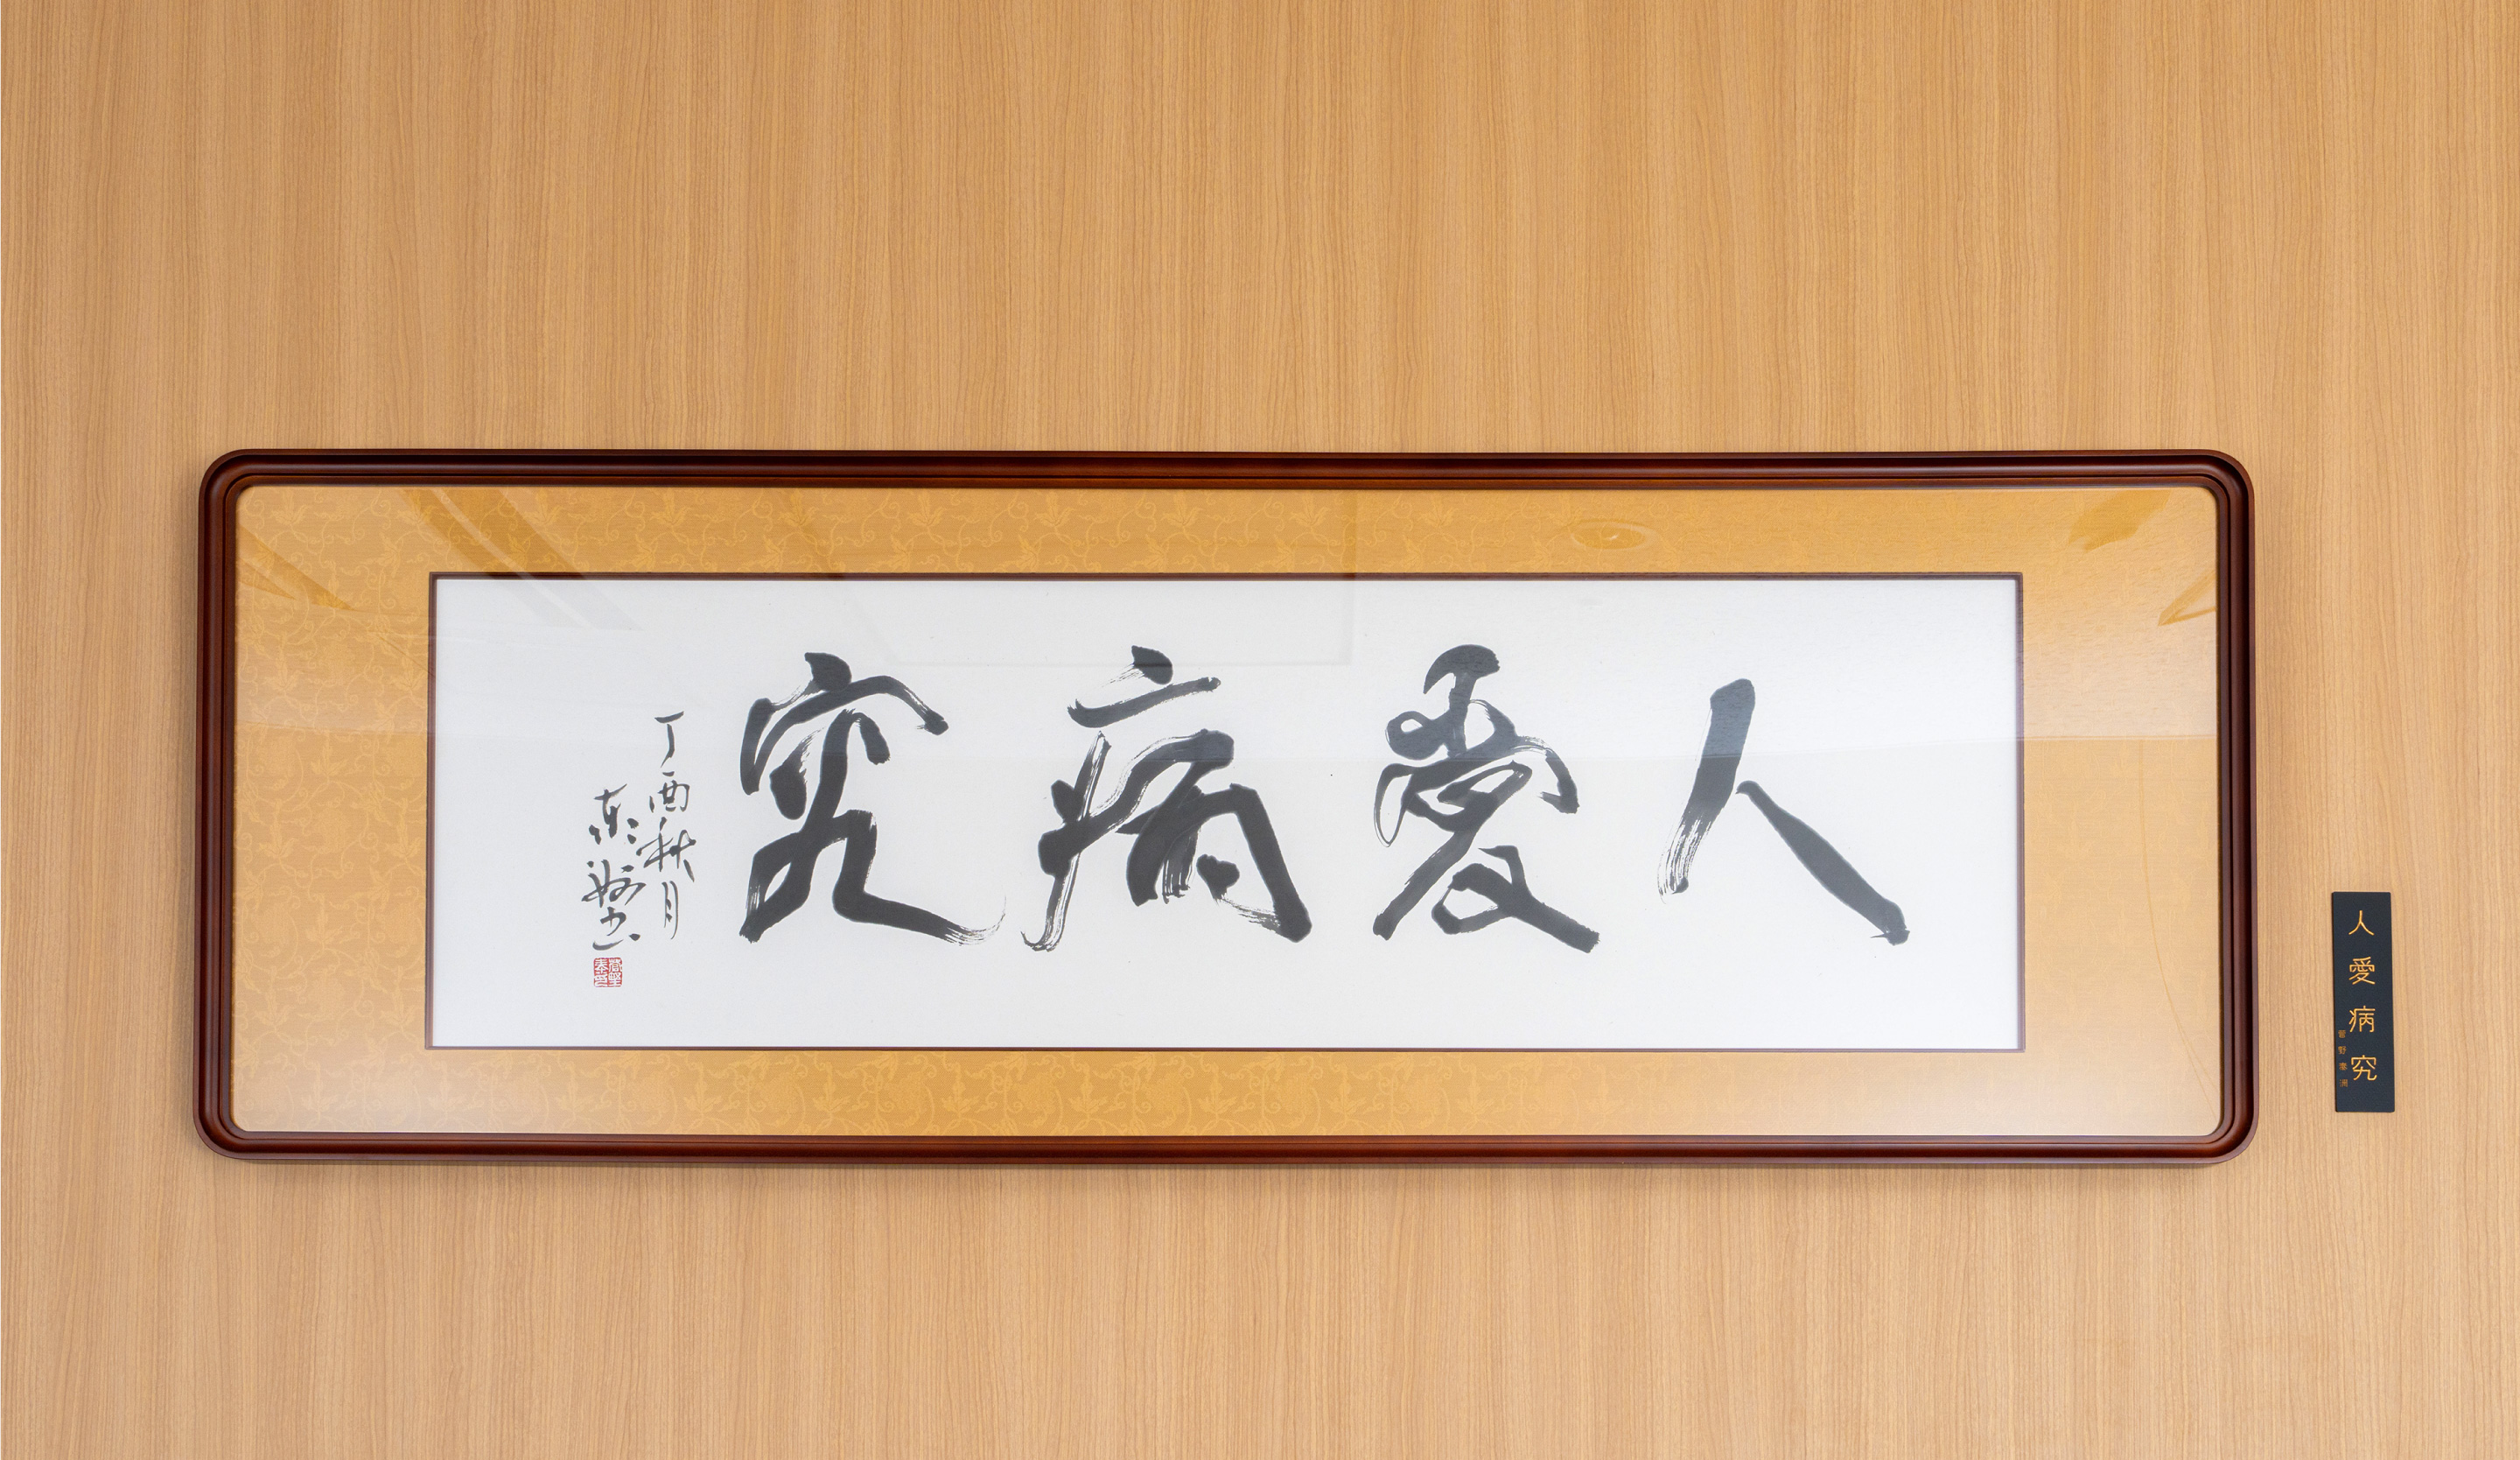 人愛病究
丁酉秋月
人愛病究